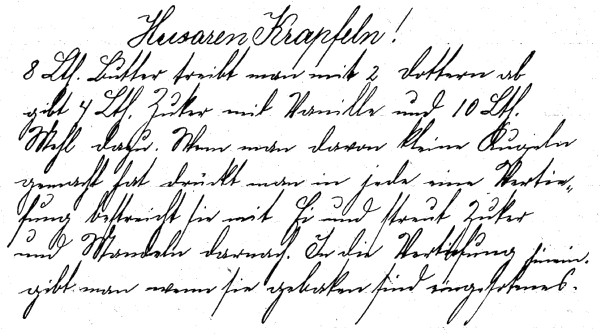 Husaren Krapfeln!
8 Lth. Butter treibt man mit 2 Dottern ab
gibt 4 Lth. Zuker mit Vanille und 10 Lth.
Mehl dazu. Wenn man davon kleine Kugeln
gemacht hat drückt man in jede eine Vertie„
fung bestreicht sie mit Ei und streut Zuker
und Mandeln darnach. In die Vertiefung hinein.
gibt man wenn sie gebaken sind eingesottenes.